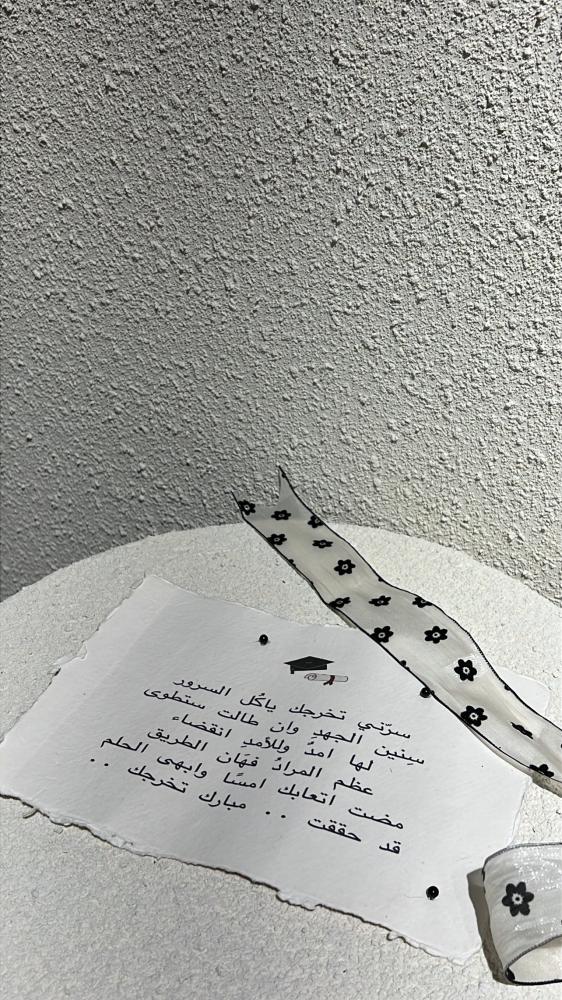 سرّني تخرجك ياكُل السرور
سِنين الجهدِ وان طالت ستطوى
لها امدٌ وللأمدِ انقضاء
عظم المرادُ فهَان الطريق
مضت اتعابك امسًا وابهى الحلم
قد حققت .. مبارك تخرجك ..